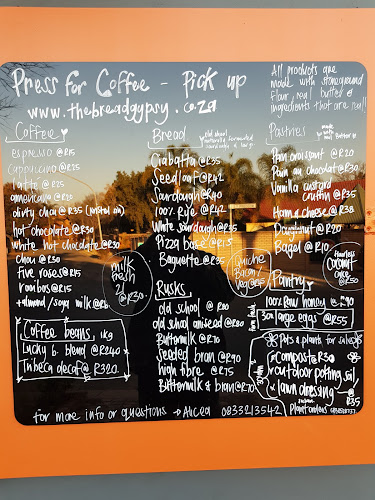 Press for Coffee - Pick up
www.thebreadgypsy.co.za
All products are
made with stoneground
flour, real butter &
ingredients that are real!
Coffee
espresso @ R15
cappuccino @ R25
latte @ R25
americano @ R20
dirty chai @ R35
hot chocolate @ R30
white hot chocolate @ R30
Chai @ R30
five roses @ R15
rooibos @ R15
+almond/soya milk @ R6
milk
fresh
2l
@ R30
Coffee beans, 1kg
Lucky 6 blend @ R240
Tribeca decaf @ R320
Bread
Ciabatta @ R35
Seed loaf @ R42
Sourdough @ R40
100% Rye @ R42
White sourdough @ R35
Pizza base @ R15
Baguette @ R35
Quiche
Bacon/
Veg @ R55
Rusks
old school @ R80
old school aniseed @ R80
Buttermilk @ R70
Seeded bran @ R90
high fibre @ R75
Buttermilk & bran @ R70
Pastries
made
with
butter
Plain croissant @ R20
Pain au chocolat @ R30
Vanilla custard
cruffin @ R35
Ham & cheese @ R38
Doughnut @ R20
Bagel @ R10
Flourless
Coconut
cake
@ R50
Pantry
100% Raw honey @ R90
30x large eggs @ R55
Pots & plants for sale
Compost @ R50
outdoor potting soil
lawn dressing
R35
Plantonious
for more info or questions → Alicea 0833213542